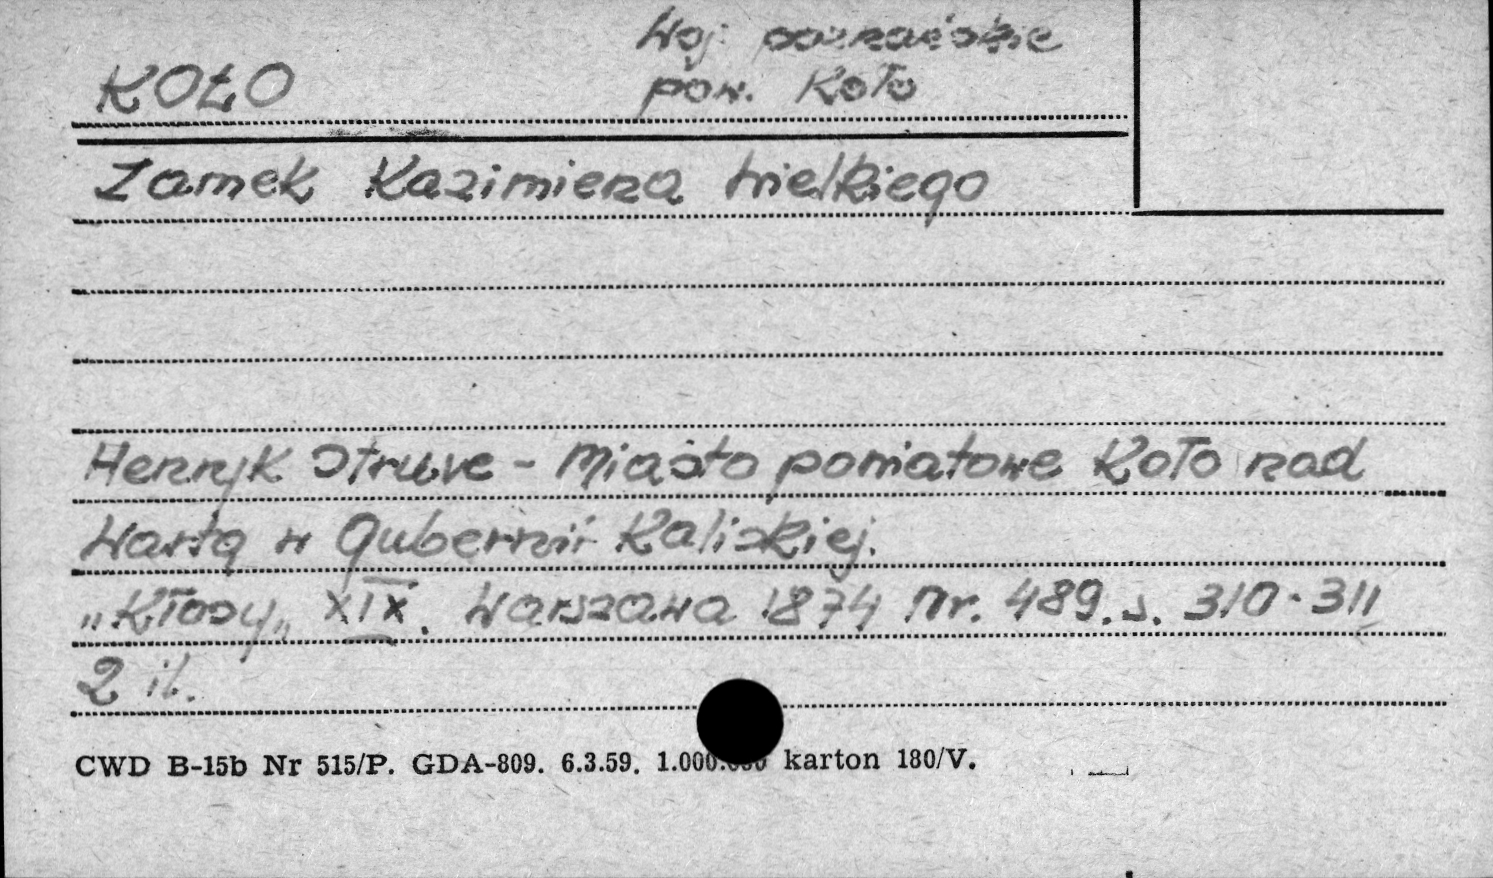 Woj. poznańskie
KOŁO pow. Koło
Zamek Kazimierza Wielkiego
Henryk Struve - Miasto powiatowe Koło nad
Wartą w Gubernii Kaliskiej.
„Kłosy„ XIX. Warszawa 1874 Nr. 489. s. 310-311
2 il.
CWD B-15b Nr 515/P. GDA-809. 6.3.59. karton 180/V.